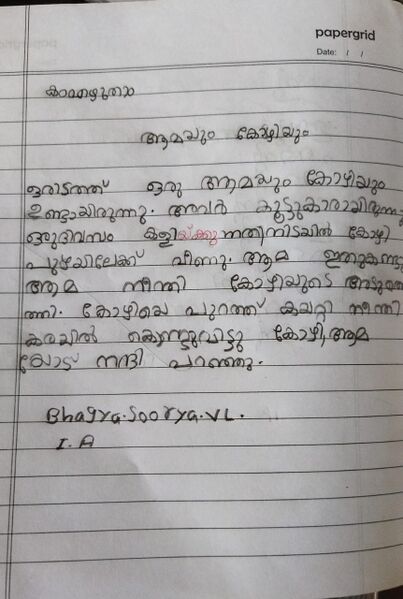 papergrid
Date: / /
കഥയെഴുതാം
ആമയും കോഴിയും
ഒരിടത്ത് ഒരു ആമയും കോഴിയും
ഉണ്ടായിരുന്നു. അവർ കൂട്ടുകാരായിരുന്നു
ഒരുദിവസം കളിയ്ക്കുന്നതിനിടയിൽ കോഴി
പുഴയിലേക്ക് വീണു. ആമ ഇതുകണ്ടു
ആമ നീന്തി കോഴിയുടെ അടുത്തെ
ത്തി. കോഴിയെ പുറത്ത് കയറ്റി നീന്തി
കരയിൽ കൊണ്ടുവിട്ടു കോഴി, ആമ
യോട് നന്ദി പറഞ്ഞു.
Bhagya.Soorya.VL.
I.A